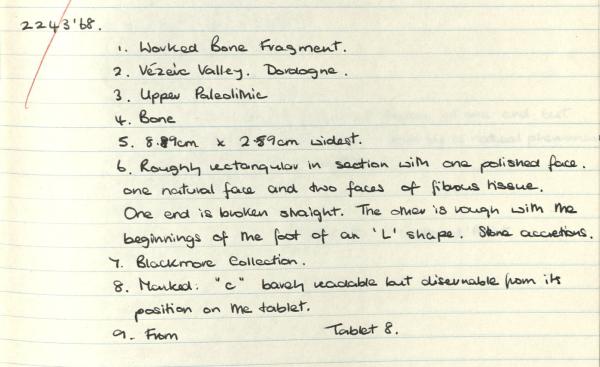 2243'68.
1. Worked Bone Fragment.
2. Vézeic Valley. Dordogne.
3. Upper Paleolimic
4. Bone
5. 8.89cm x 2.59cm widest.
6. Roughly rectangular in section with one polished face.
one natural face and two faces of fibrous tissue.
One end is broken straight. The other is rough with the
beginnings of the foot of an 'L' shape. Stone accretions.
7. Blackmore Collection.
8. Marked: "c" barely readable but disernable from its
position on the tablet.
9. From Tablet 8.